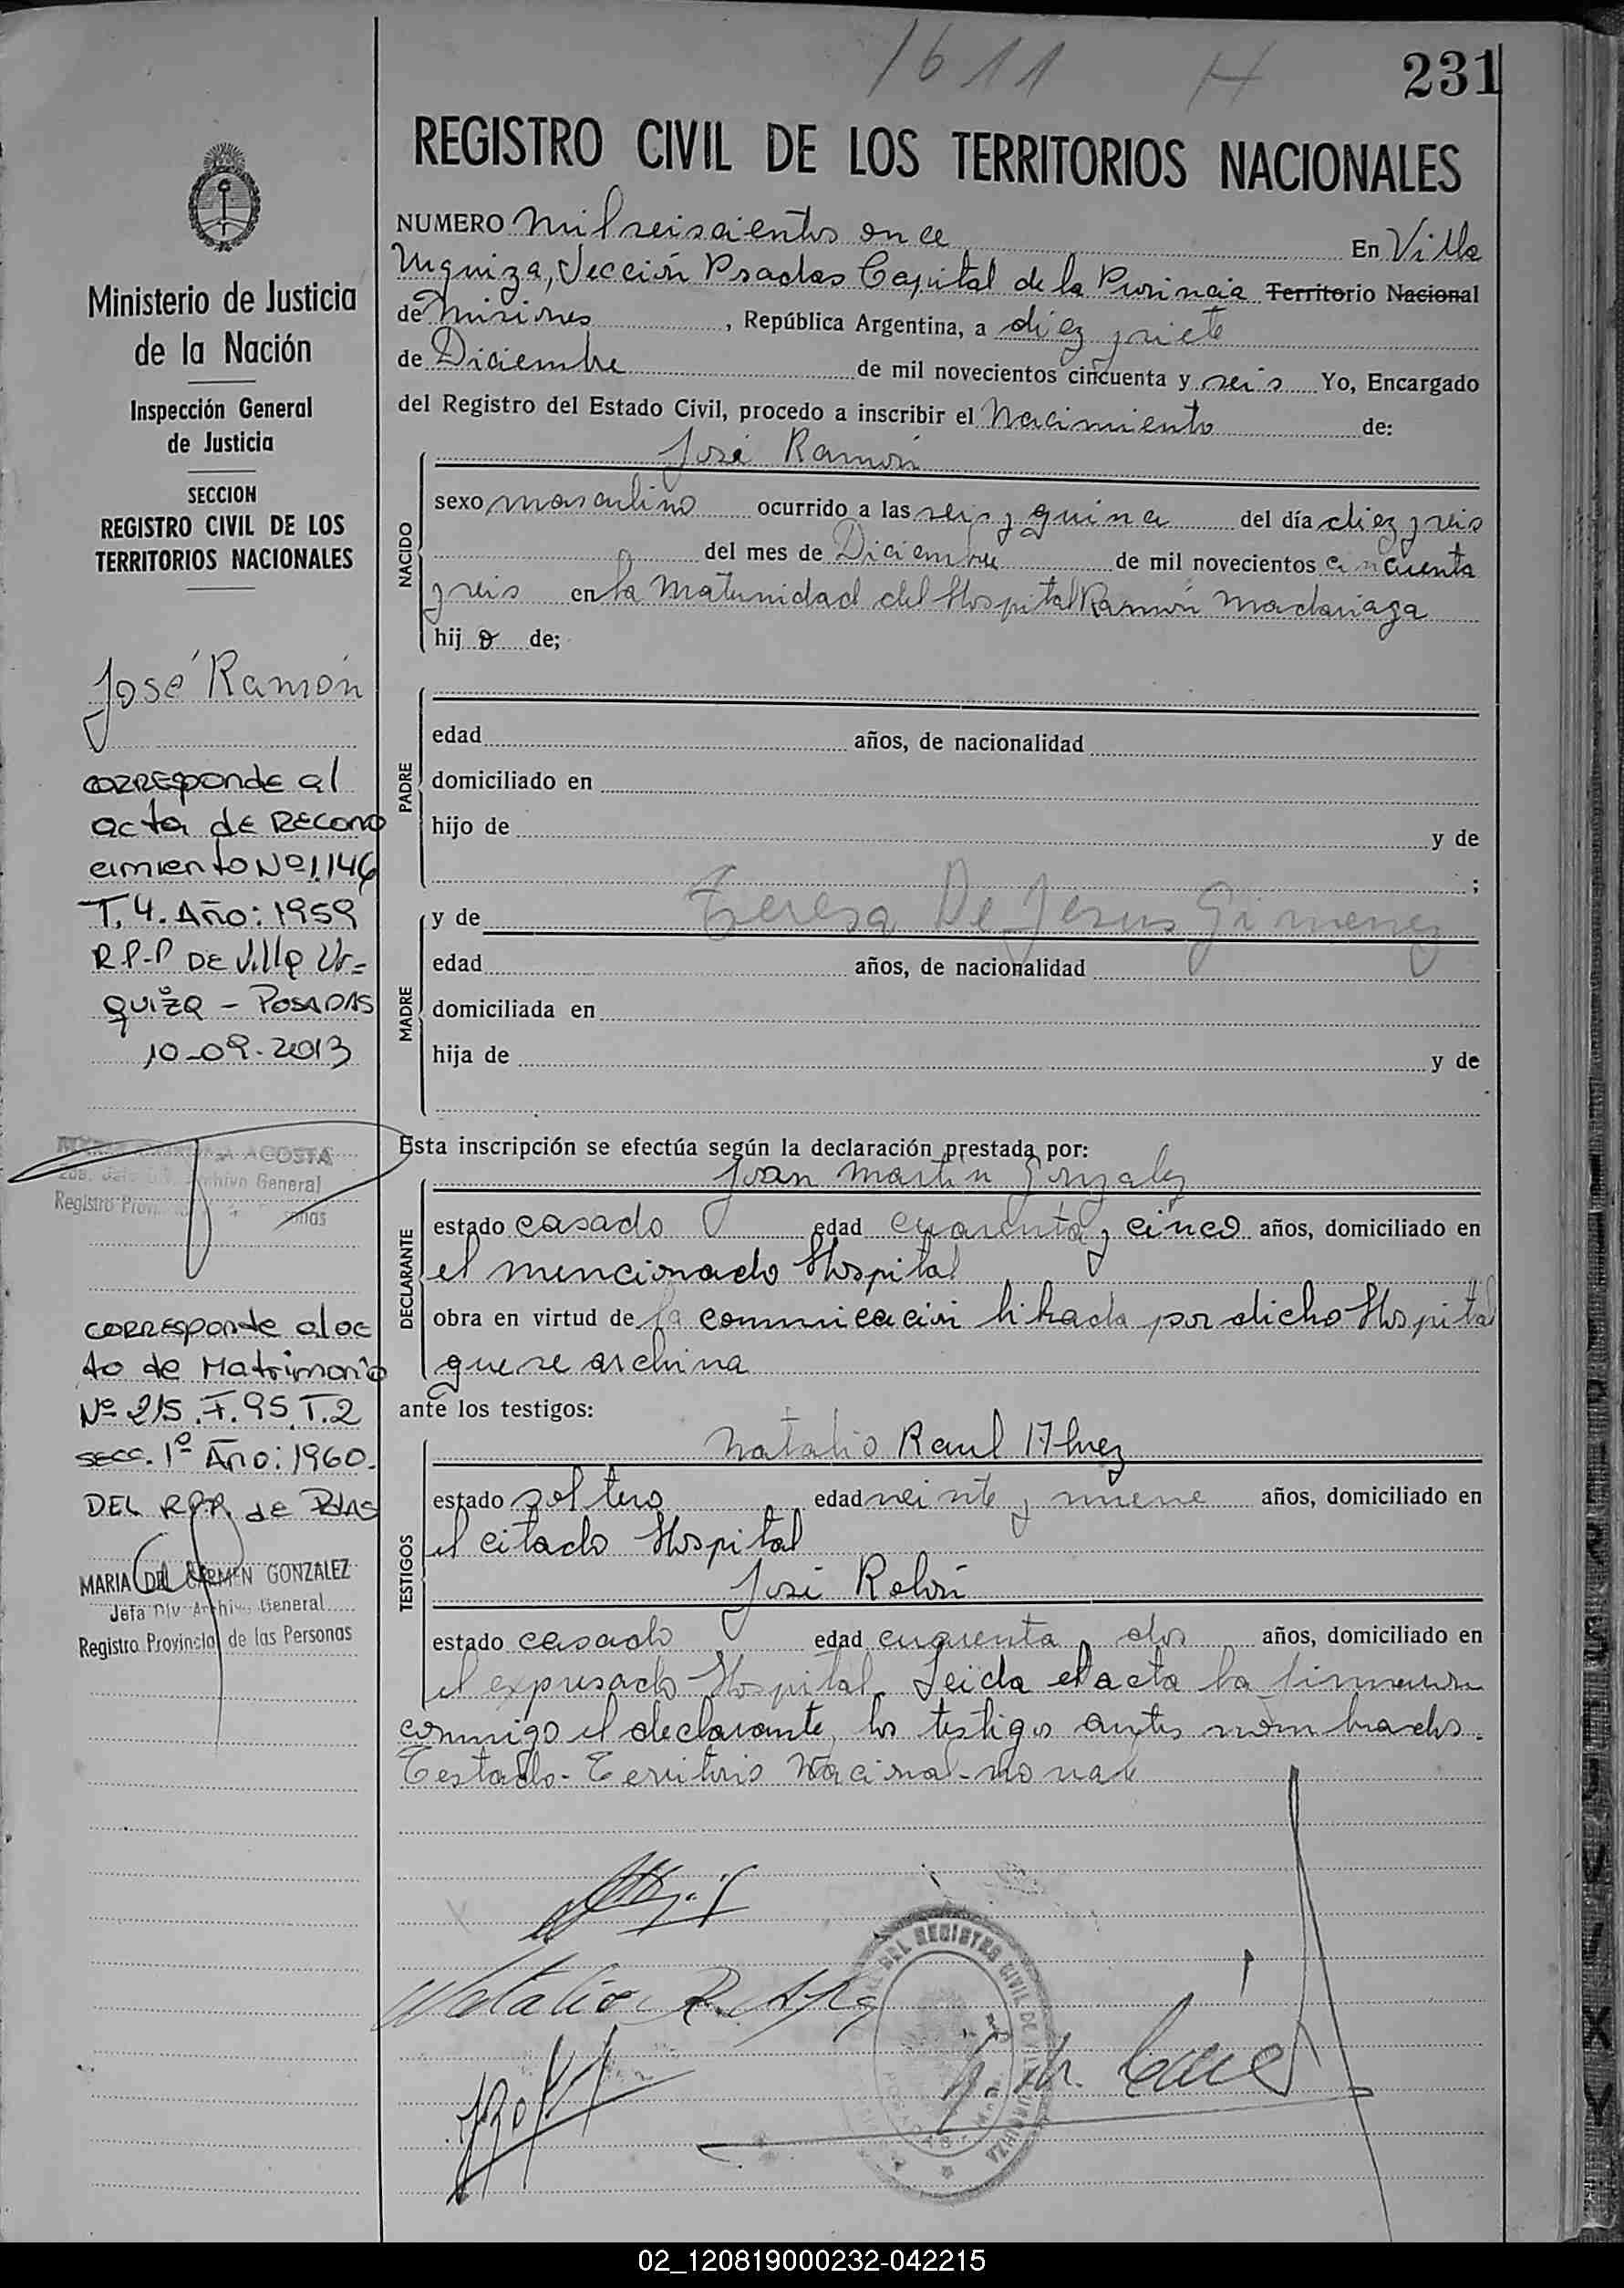 1611 H 231
REGISTRO CIVIL DE LOS TERRITORIOS NACIONALES
NUMERO Mil seiscientos once En Villa
Urquiza, Sección Posadas Capital de la Provincia Territorio Nacional
de Misiones, República Argentina, a diez y siete
de Diciembre de mil novecientos cincuenta y seis Yo, Encargado
del Registro del Estado Civil, procedo a inscribir el Nacimiento de:
NACIDO
José Ramón
sexo masculino ocurrido a las seis y quince del día diez y seis
del mes de Diciembre de mil novecientos cincuenta
y seis en la Maternidad del Hospital Ramón Madariaga
hij o de;
PADRE
edad años, de nacionalidad
domiciliado en
hijo de y de
;
MADRE
y de Teresa De Jesus Gimenez
edad años, de nacionalidad
domiciliada en
hija de y de
Esta inscripción se efectúa según la declaración prestada por:
DECLARANTE
Juan Martin Gonzalez
estado casado edad cuarenta y cinco años, domiciliado en
el mencionado Hospital
obra en virtud de la comunicación librada por dicho Hospital
que se archiva
ante los testigos:
TESTIGOS
Natalio Raul Alvez
estado soltero edad veinte y nueve años, domiciliado en
el citado Hospital
José Rolón
estado casado edad cuarenta y dos años, domiciliado en
el expresado Hospital. Leida el acta la firmaron
conmigo el declarante, los testigos antes nombrados.
Testado - Territorio Nacional - no vale
Natalio R.
Ministerio de Justicia
de la Nación
Inspección General
de Justicia
SECCION
REGISTRO CIVIL DE LOS
TERRITORIOS NACIONALES
José Ramón
corresponde al
acta de recono
cimiento Nº 1.146
T. 4. Año: 1959
R.P.P DE Villa Ur=
quiza - Posadas
10-09-2013
ACOSTA
Archivo General
Registro Prov
corresponde al ac
to de Matrimonio
Nº 215. F. 95. T. 2
secc. 1º Año: 1960.
DEL RPP. de Pdas
MARIA DEL CARMEN GONZALEZ
Jefa Div Archivo General
Registro Provincial de las Personas
DEL REGISTRO CIVIL DE VILLA URQUIZA
02_120819000232-042215